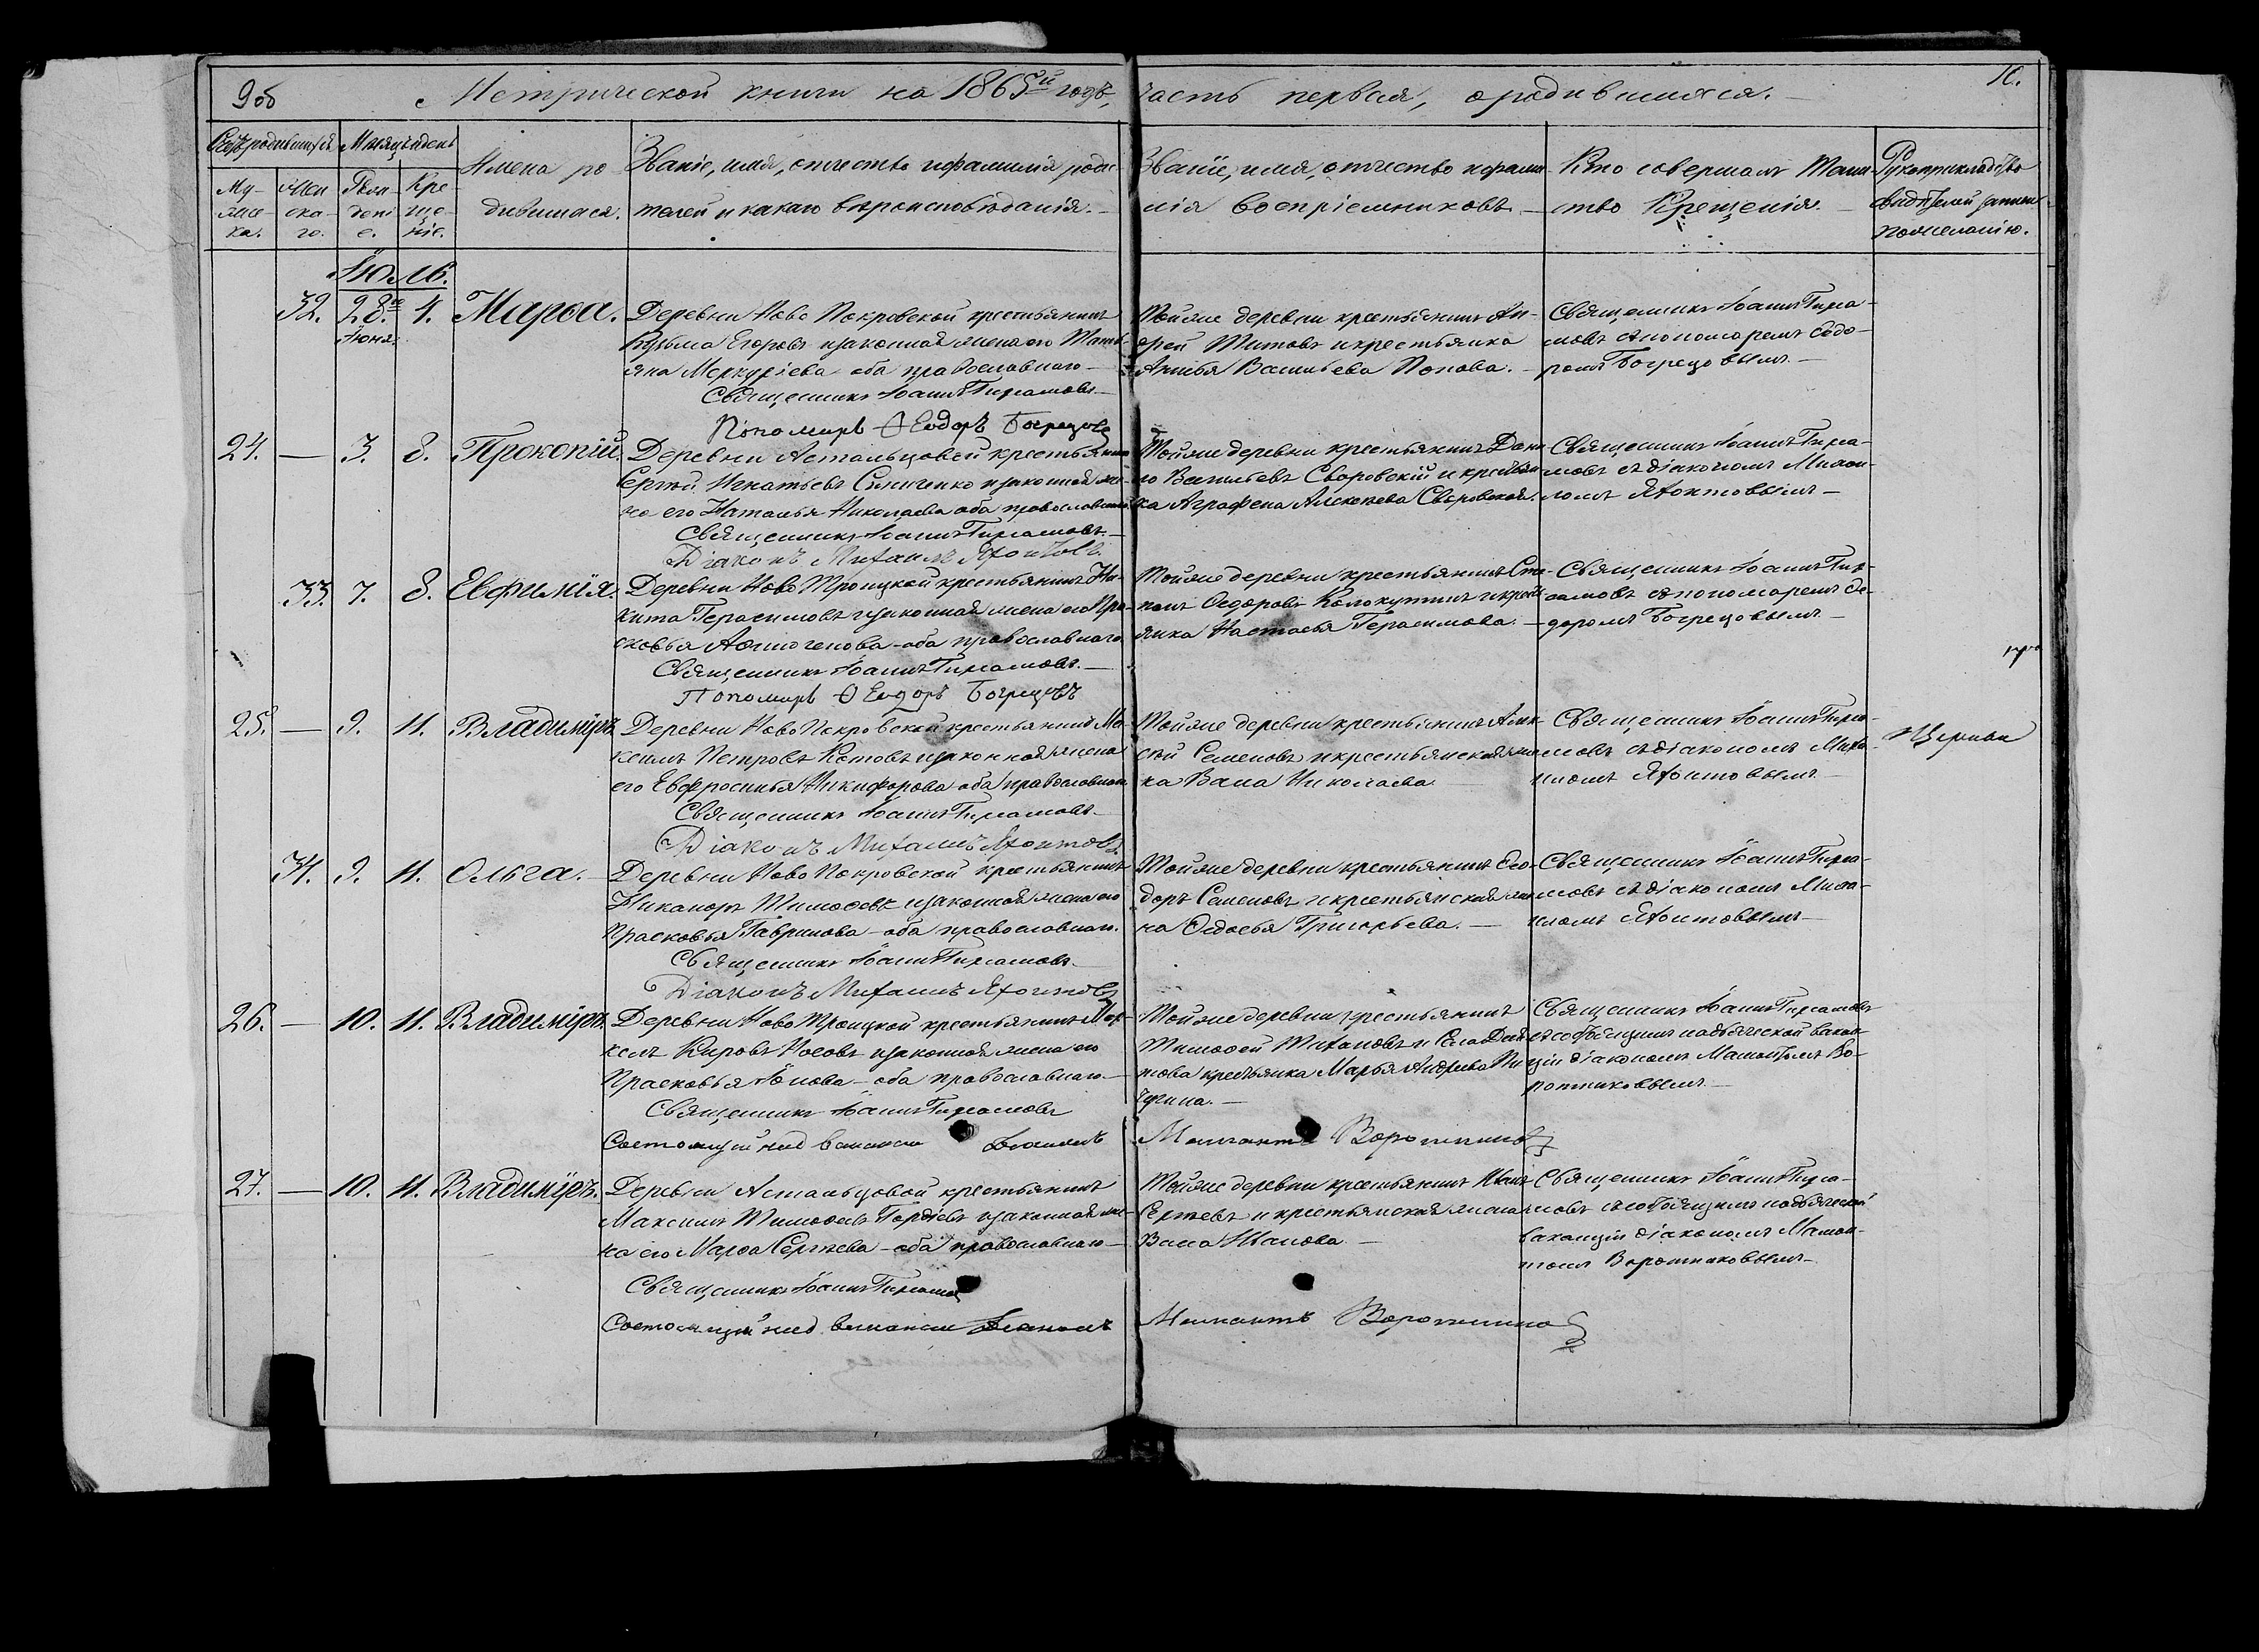 9об
Метрической книги на 1865й годъ,
часть первая, о родившихся.
10.
Счетъ родившихся
Мѣсяцъ и день
Имена родившихся.
Званіе, имя, отчество и фамилія родителей и какаго вѣроисповѣданія.
Званіе, имя, отчество и фамилія воспріемниковъ.
Кто совершалъ Таинство Крещенія.
Рукоприкладство свидѣтелей записи по желанію.
Мужеска.
Женскаго.
Рожденіе.
Крещеніе.
Іюль.
32. 28го Іюня. 4. Марѳа.
Деревни Ново Покровской крестьянинъ
Кузьма Егоровъ и законная жена его Тать-
яна Меркуріева оба православнаго
Священникъ Іоаннъ
Пономарь Ѳеодоръ Богрецовъ
Тойже деревни крестьянинъ Ан-
дрей Титовъ и крестьянка
Васильева Попова.
Священникъ Іоаннъ
съ пономаремъ Ѳедо-
ромъ Богрецовымъ
24. — 3. 8. Прокопій.
Деревни Астальцовой крестьянинъ
Сергѣй Игнатьевъ Синиченко и законная же-
на его Наталья Николаева оба православнаго
Священникъ Іоаннъ
Діаконъ Михаилъ Яхонтовъ
Тойже деревни крестьянинъ Дани-
ло Васильевъ Сваровскій и крестьян-
ка Аграфена Алексѣева Сваровская.
Священникъ Іоаннъ
съ діакономъ Михаи-
ломъ Яхонтовымъ
33. 7. 8. Евфимія.
Деревни Ново Троицкой крестьянинъ Ни-
кита Герасимовъ и законная жена его Пра-
сковья Аѳиногенова оба православнаго
Священникъ Іоаннъ
Пономарь Ѳеодоръ Богрецовъ
Тойже деревни крестьянинъ Сте-
панъ Ѳедоровъ Колокутинъ и кресть-
янка Настасья Герасимова.
Священникъ Іоаннъ
съ пономаремъ Ѳе-
доромъ Богрецовымъ
25. — 9. 11. Владиміръ.
Деревни Ново Покровской крестьянинъ Ма-
ксимъ Петровъ Котовъ и законная жена
его Евфросинья Никифорова оба православнаго
Священникъ Іоаннъ
Діаконъ Михаилъ Яхонтовъ
Тойже деревни крестьянинъ Алек-
сѣй Семеновъ и крестьянская
Васа Николаева
Священникъ Іоаннъ
съ діакономъ Миха-
иломъ Яхонтовымъ
Церкви
34. 9. 11. Ольга.
Деревни Ново Покровской крестьянинъ
Никаноръ Тимоѳеевъ и законная жена его
Прасковья Гаврилова оба православнаго.
Священникъ Іоаннъ
Діаконъ Михаилъ Яхонтовъ
Тойже деревни крестьянинъ Ѳео-
доръ Семеновъ и крестьянская же-
на Ѳедосья Григорьева.
Священникъ Іоаннъ
съ діакономъ Миха-
иломъ Яхонтовымъ
26. — 10. 11. Владиміръ.
Деревни Ново Троицкой крестьянинъ Мар-
келъ Кировъ Носовъ и законная жена его
Прасковья Іонова оба православнаго
Священникъ Іоаннъ
Состоящій на вакансіи Діаконъ
Тойже деревни крестьянинъ
Тимоѳей Титановъ и Села
крестьянка Марья Андреева
Священникъ Іоаннъ
вакан-
сіи діакономъ Мамонтомъ Во-
ротниковымъ
Мамантъ Воротниковъ
27. — 10. 11. Владиміръ.
Деревни Астальцовой крестьянинъ
Максимъ Тимоѳеевъ Гордѣевъ и законная же-
на его Марѳа Сергѣева оба православнаго
Священникъ Іоаннъ
Состоящій на вакансіи Діаконъ
Тойже деревни крестьянинъ Иванъ
Сергѣевъ и крестьянская жена
Васа Иванова
Священникъ Іоаннъ
вакансіи діакономъ Мамон-
томъ Воротниковымъ
Мамантъ Воротниковъ